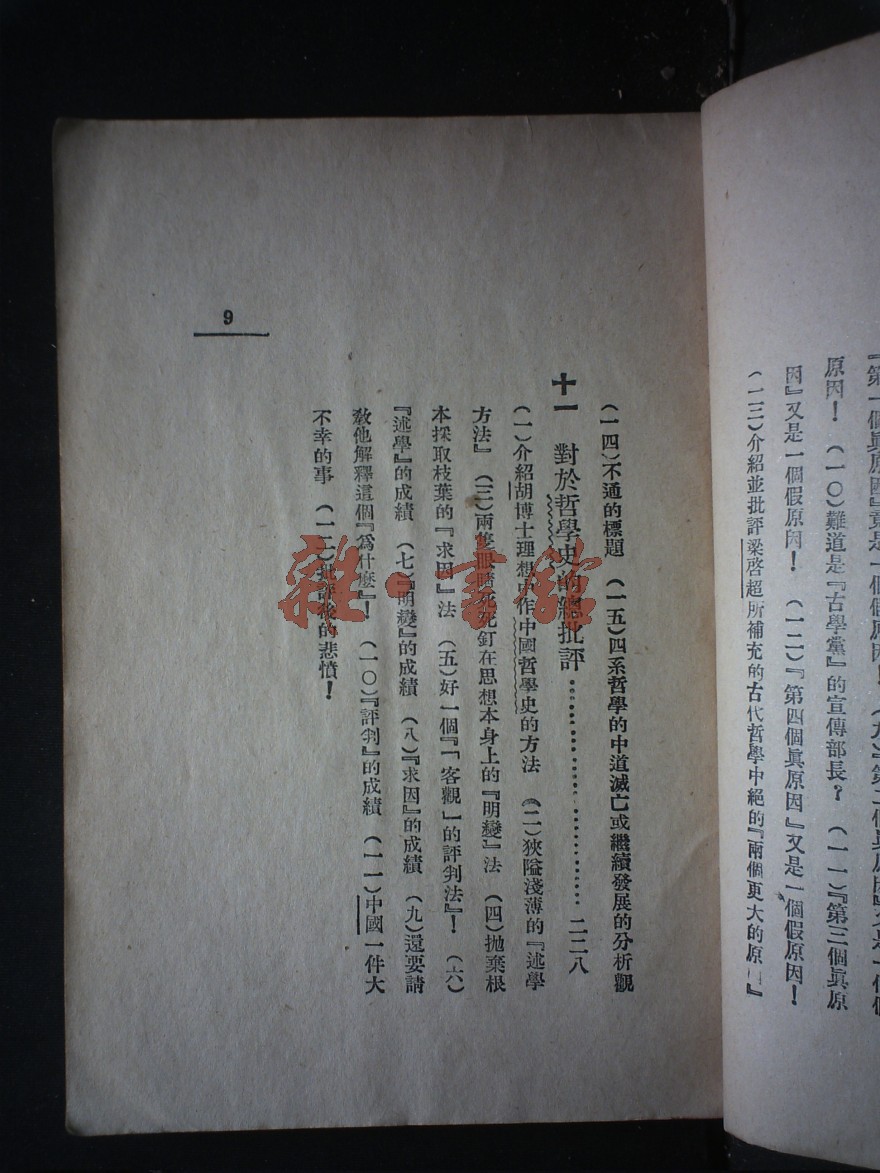 『第一個眞原因』竟是一個假原因！ (九)『第二個眞原因』又是一個假
原因！ (一〇)難道是『古學黨』的宣傳部長？ (一一)『第三個眞原
因』又是一個假原因！ (一二)『第四個眞原因』又是一個假原因！
(一三)介紹並批評梁啓超所補充的古代哲學中絕的『兩個更大的原因』
(一四)不通的標題 (一五)四系哲學的中道滅亡或繼續發展的分析觀
十一 對於哲學史的總批評……………………二二八
(一)介紹胡博士理想中作中國哲學史的方法 (二)狹隘淺薄的『述學
方法』 (三)兩隻眼睛死死釘在思想本身上的『明變』法 (四)拋棄根
本採取枝葉的『求因』法 (五)好一個『「客觀」的評判法』！ (六)
『述學』的成績 (七)『明變』的成績 (八)『求因』的成績 (九)還要請
敎他解釋這個『爲什麼』！ (一〇)『評判』的成績 (一一)中國一件大
不幸的事 (一二)批評後的悲憤！
9
雜·書館